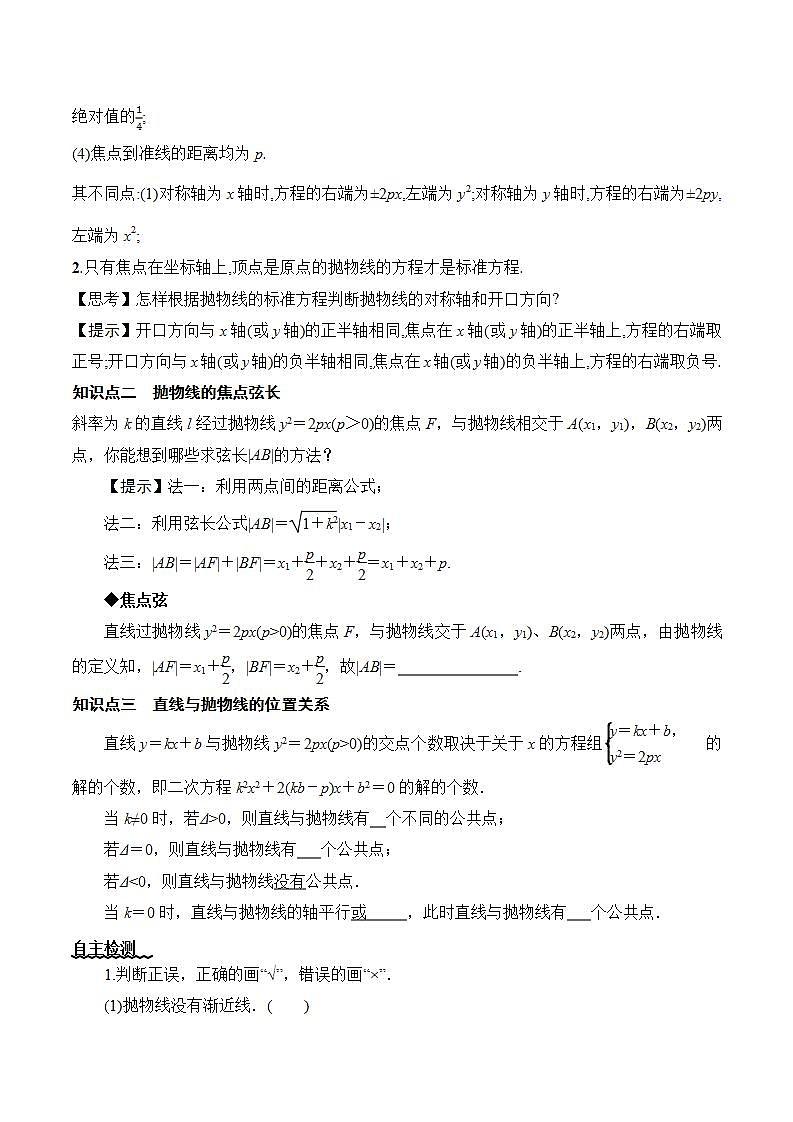 绝对值的1/4;
(4)焦点到准线的距离均为 p.
其不同点:(1)对称轴为 x 轴时,方程的右端为±2px,左端为 y²;对称轴为 y 轴时,方程的右端为±2py,
左端为 x²;
2.只有焦点在坐标轴上,顶点是原点的抛物线的方程才是标准方程.
【思考】怎样根据抛物线的标准方程判断抛物线的对称轴和开口方向?
【提示】开口方向与 x 轴(或 y 轴)的正半轴相同,焦点在 x 轴(或 y 轴)的正半轴上,方程的右端取
正号;开口方向与 x 轴(或 y 轴)的负半轴相同,焦点在 x 轴(或 y 轴)的负半轴上,方程的右端取负号.
知识点二 抛物线的焦点弦长
斜率为 k 的直线 l 经过抛物线 y²=2px(p>0)的焦点 F，与抛物线相交于 A(x₁，y₁)，B(x₂，y₂)两
点，你能想到哪些求弦长|AB|的方法？
【提示】法一：利用两点间的距离公式；
法二：利用弦长公式|AB|=√(1+k²)|x₁-x₂|；
法三：|AB|=|AF|+|BF|=x₁+p/2+x₂+p/2=x₁+x₂+p.
◆焦点弦
直线过抛物线 y²=2px(p>0)的焦点 F，与抛物线交于 A(x₁，y₁)、B(x₂，y₂)两点，由抛物线
的定义知，|AF|=x₁+p/2，|BF|=x₂+p/2，故|AB|=________________.
知识点三 直线与抛物线的位置关系
直线 y=kx+b 与抛物线 y²=2px(p>0)的交点个数取决于关于 x 的方程组{y=kx+b， y²=2px 的
解的个数，即二次方程 k²x²+2(kb-p)x+b²=0 的解的个数．
当 k≠0 时，若Δ>0，则直线与抛物线有__个不同的公共点；
若Δ=0，则直线与抛物线有___个公共点；
若Δ<0，则直线与抛物线没有公共点．
当 k=0 时，直线与抛物线的轴平行或_____，此时直线与抛物线有___个公共点．
自主检测
1.判断正误，正确的画“√”，错误的画“×”．
(1)抛物线没有渐近线．( )